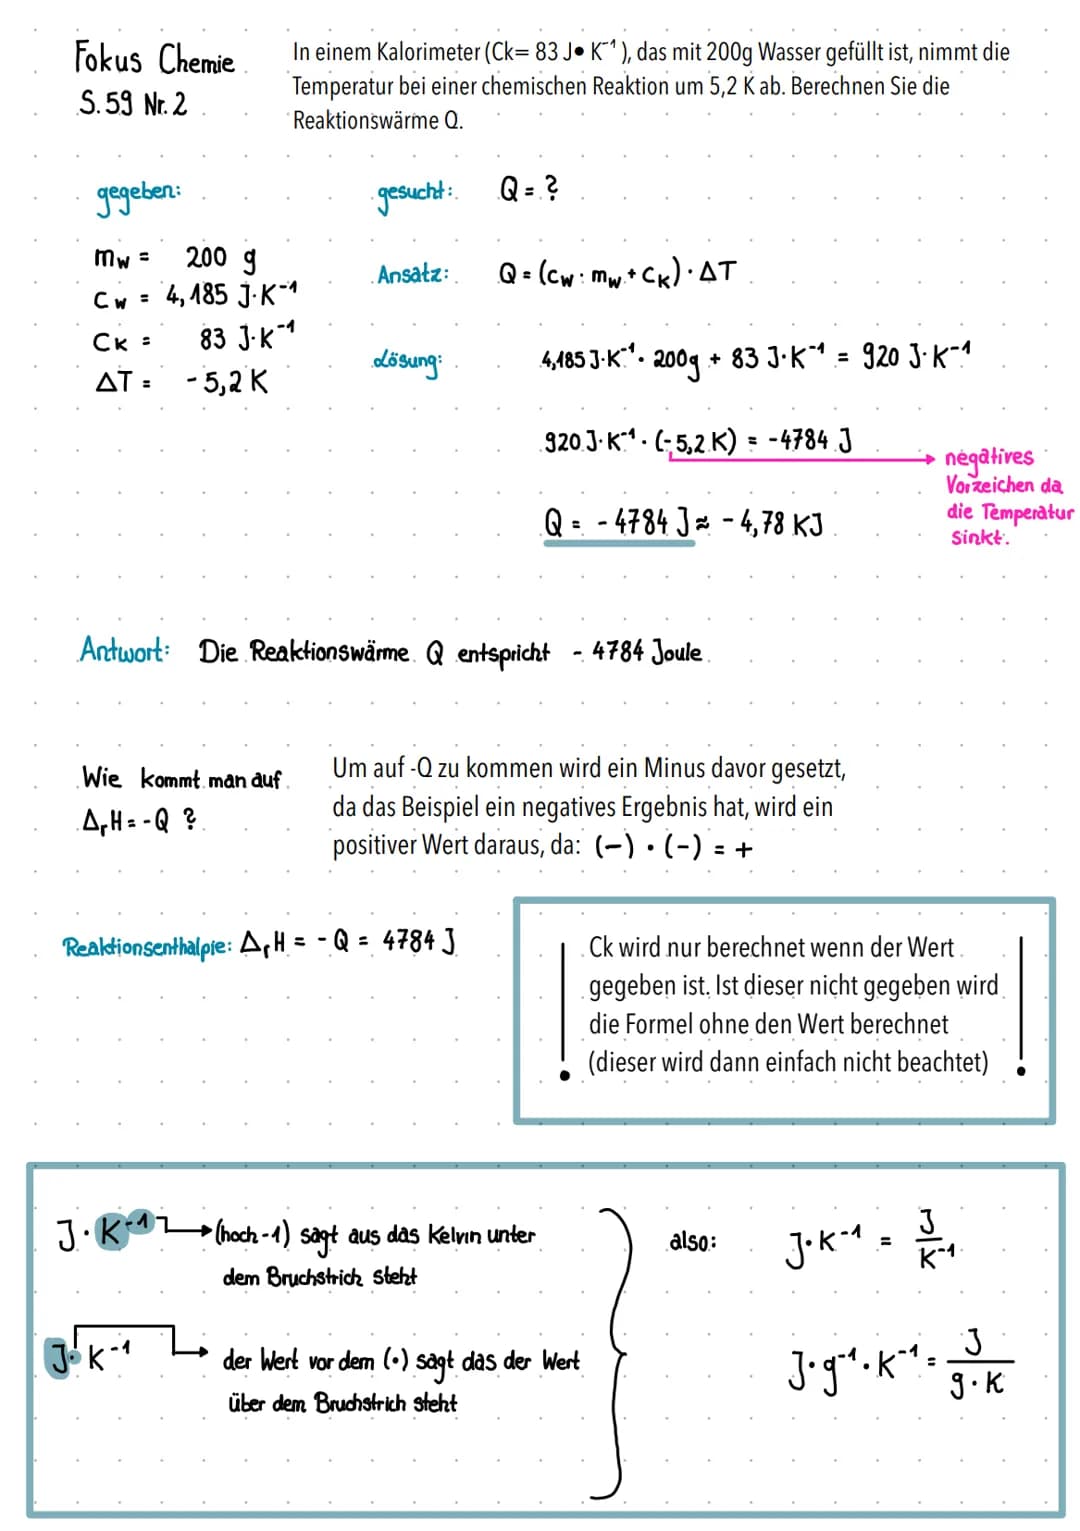 Fokus Chemie
S. 59 Nr. 2
In einem Kalorimeter (Ck= 83 J• K⁻¹ ), das mit 200g Wasser gefüllt ist, nimmt die
Temperatur bei einer chemischen Reaktion um 5,2 K ab. Berechnen Sie die
Reaktionswärme Q.
gegeben:
mw = 200 g
Cw = 4,185 J·K⁻¹
CK = 83 J·K⁻¹
ΔT = -5,2 K
gesucht: Q = ?
Ansatz: Q = (cw · mw + CK) · ΔT
Lösung: 4,185 J·K⁻¹ · 200g + 83 J·K⁻¹ = 920 J·K⁻¹
920 J·K⁻¹ · (-5,2 K) = -4784 J
negatives
Vorzeichen da
die Temperatur
sinkt.
Q = -4784 J ≈ -4,78 KJ
Antwort: Die Reaktionswärme Q entspricht - 4784 Joule
Wie kommt man auf
ΔrH = -Q ?
Um auf -Q zu kommen wird ein Minus davor gesetzt,
da das Beispiel ein negatives Ergebnis hat, wird ein
positiver Wert daraus, da: (-) · (-) = +
Reaktionsenthalpie: ΔrH = -Q = 4784 J
! Ck wird nur berechnet wenn der Wert !
gegeben ist. Ist dieser nicht gegeben wird
die Formel ohne den Wert berechnet
(dieser wird dann einfach nicht beachtet)
J·K⁻¹ → (hoch -1) sagt aus das Kelvin unter
dem Bruchstrich steht
J·K⁻¹ → der Wert vor dem (•) sagt das der Wert
über dem Bruchstrich steht
also: J·K⁻¹ = J/K⁻¹
J·g⁻¹·K⁻¹ = J/g·K